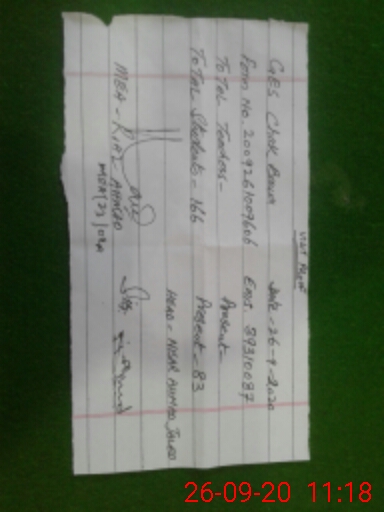 Visit Report
GES Chak Bawa Date - 26-9-2020
Form No. 2009261009606 Emis. 39310087
Total Teachers - Present -
Total Students - 166 Present - 83
HEAD - NISAR AHMED
MEA - RIAZ AHMAD
26-09-20 11:18